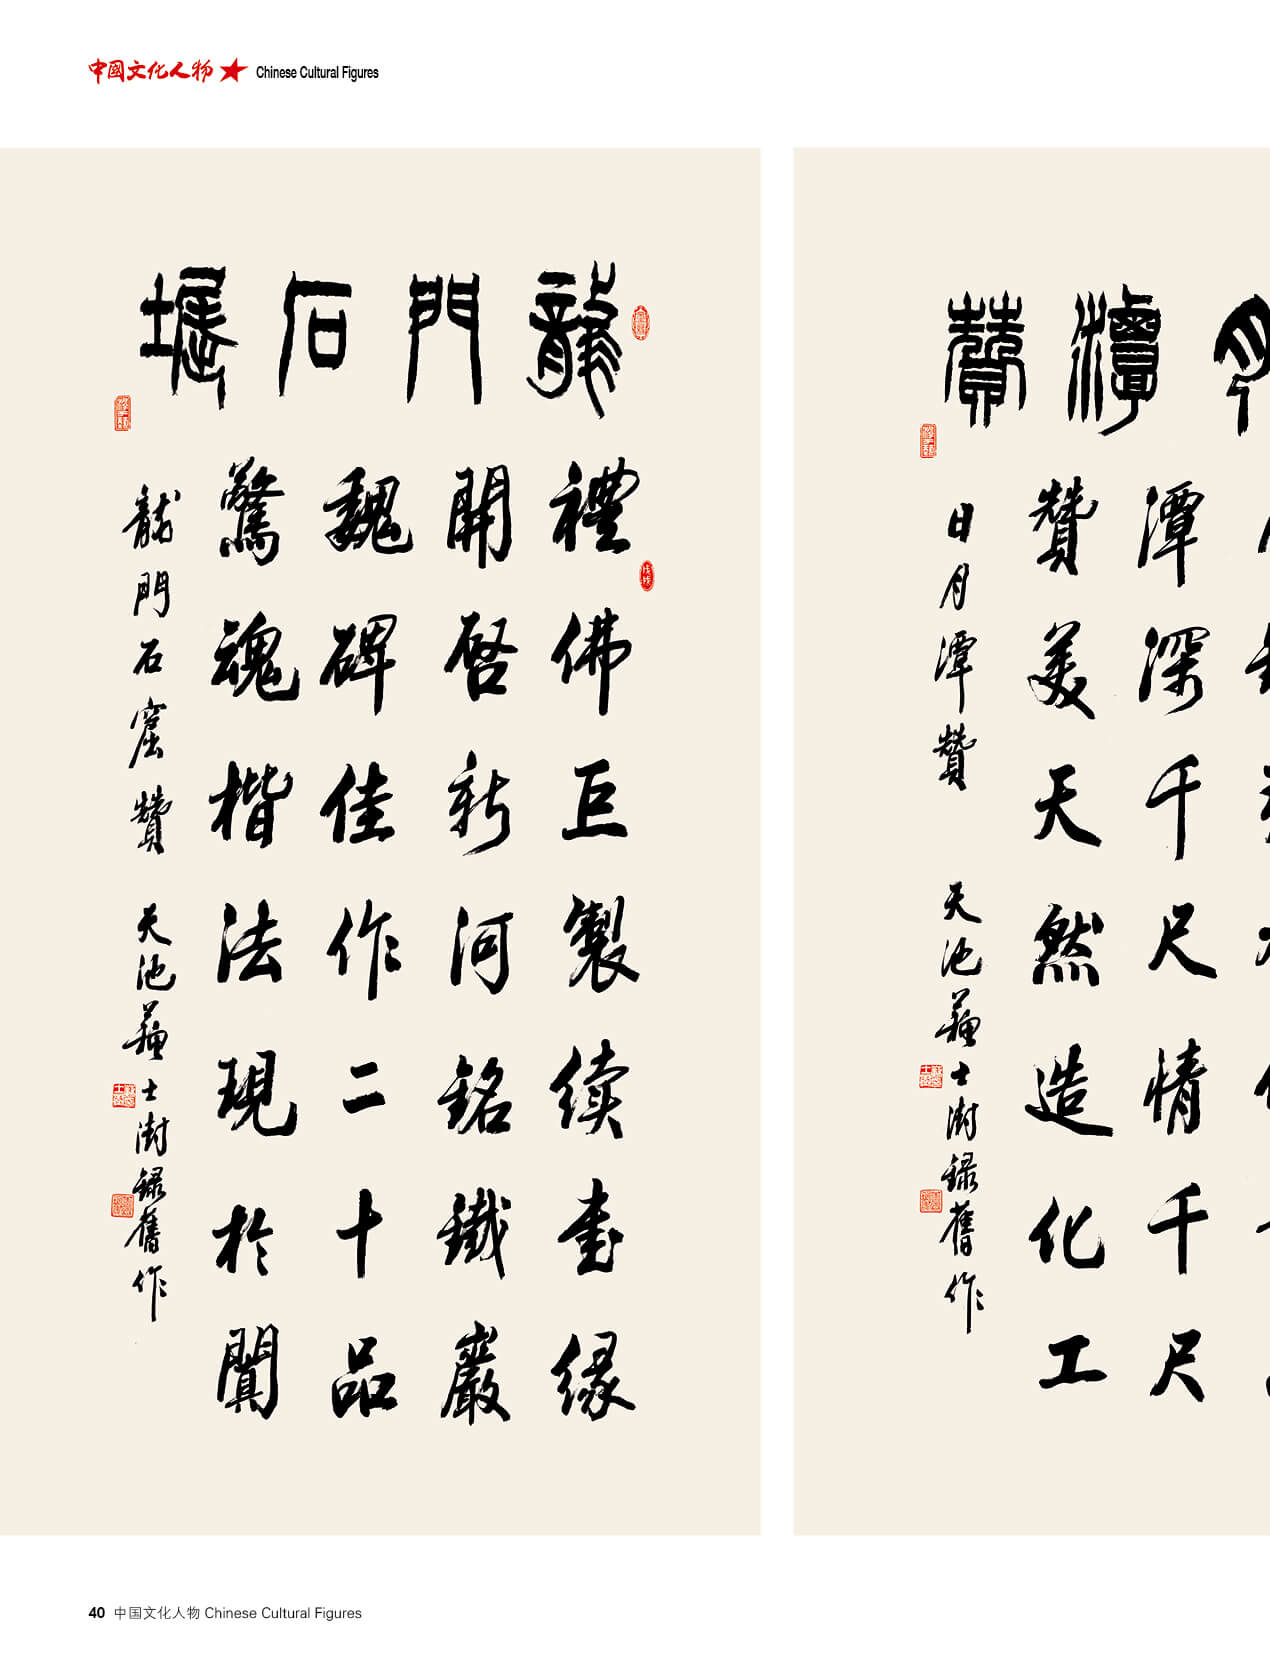 中國文化人物 Chinese Cultural Figures
龍門石堀
禮佛巨製续书缘
開啓新河銘鐵嚴
魏碑佳作二十品
驚魂楷法現於闐
龍門石窟贊 天池蘇士澍録舊作
月潭贊
潭深千尺情千尺
贊美天然造化工
日月潭贊 天池蘇士澍録舊作
40 中国文化人物 Chinese Cultural Figures